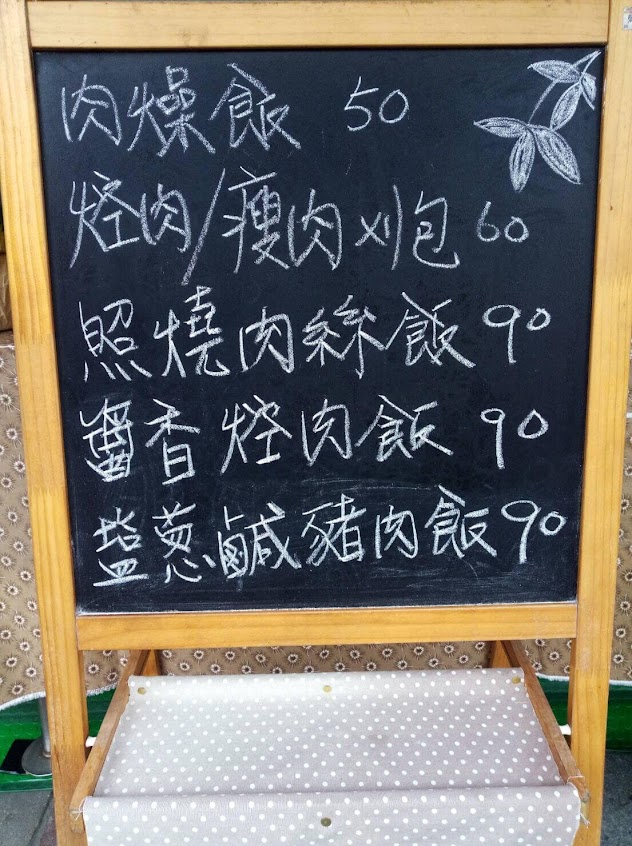 肉燥飯 50
焢肉/瘦肉刈包 60
照燒肉絲飯 90
醬香焢肉飯 90
塩蔥鹹豬肉飯 90